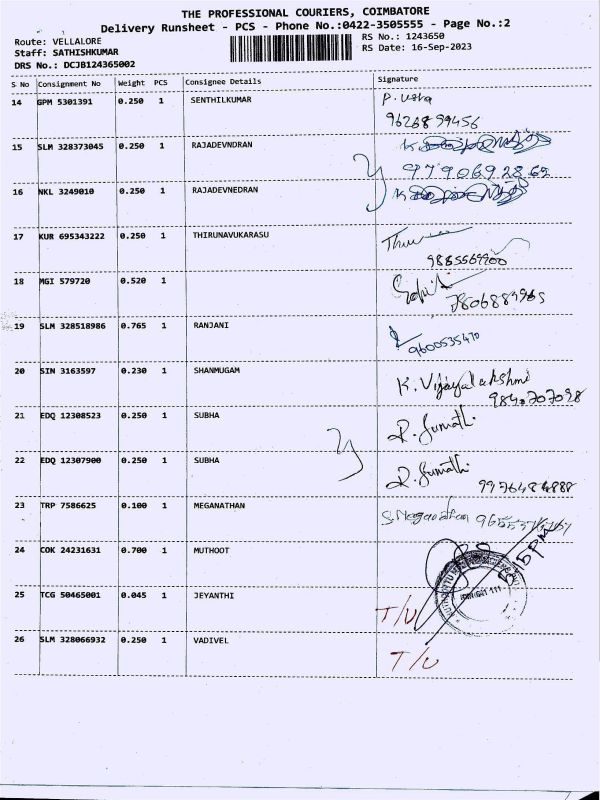 THE PROFESSIONAL COURIERS, COIMBATORE
Delivery Runsheet - PCS - Phone No.:0422-3505555 - Page No.:2
Route: VELLALORE
Staff: SATHISHKUMAR
DRS No.: DCJB124365002
RS No.: 1243650
RS Date: 16-Sep-2023
S No Consignment No Weight PCS Consignee Details Signature
14 GPM 5301391 0.250 1 SENTHILKUMAR P. Usha
9626899456
15 SLM 328373045 0.250 1 RAJADEVNDRAN
9790692862
16 NKL 3249010 0.250 1 RAJADEVNEDRAN
17 KUR 695343222 0.250 1 THIRUNAVUKARASU
9885569900
18 MGI 579720 0.520 1
19 SLM 328518986 0.765 1 RANJANI
9600535470
20 SIN 3163597 0.230 1 SHANMUGAM K. Vijayalakshmi
21 EDQ 12308523 0.250 1 SUBHA R. Sumathi
22 EDQ 12307900 0.250 1 SUBHA R. Sumathi
23 TRP 7586625 0.100 1 MEGANATHAN S. Meganathan
24 COK 24231631 0.700 1 MUTHOOT 5:15pm
25 TCG 50465001 0.045 1 JEYANTHI T/U
26 SLM 328066932 0.250 1 VADIVEL T/U